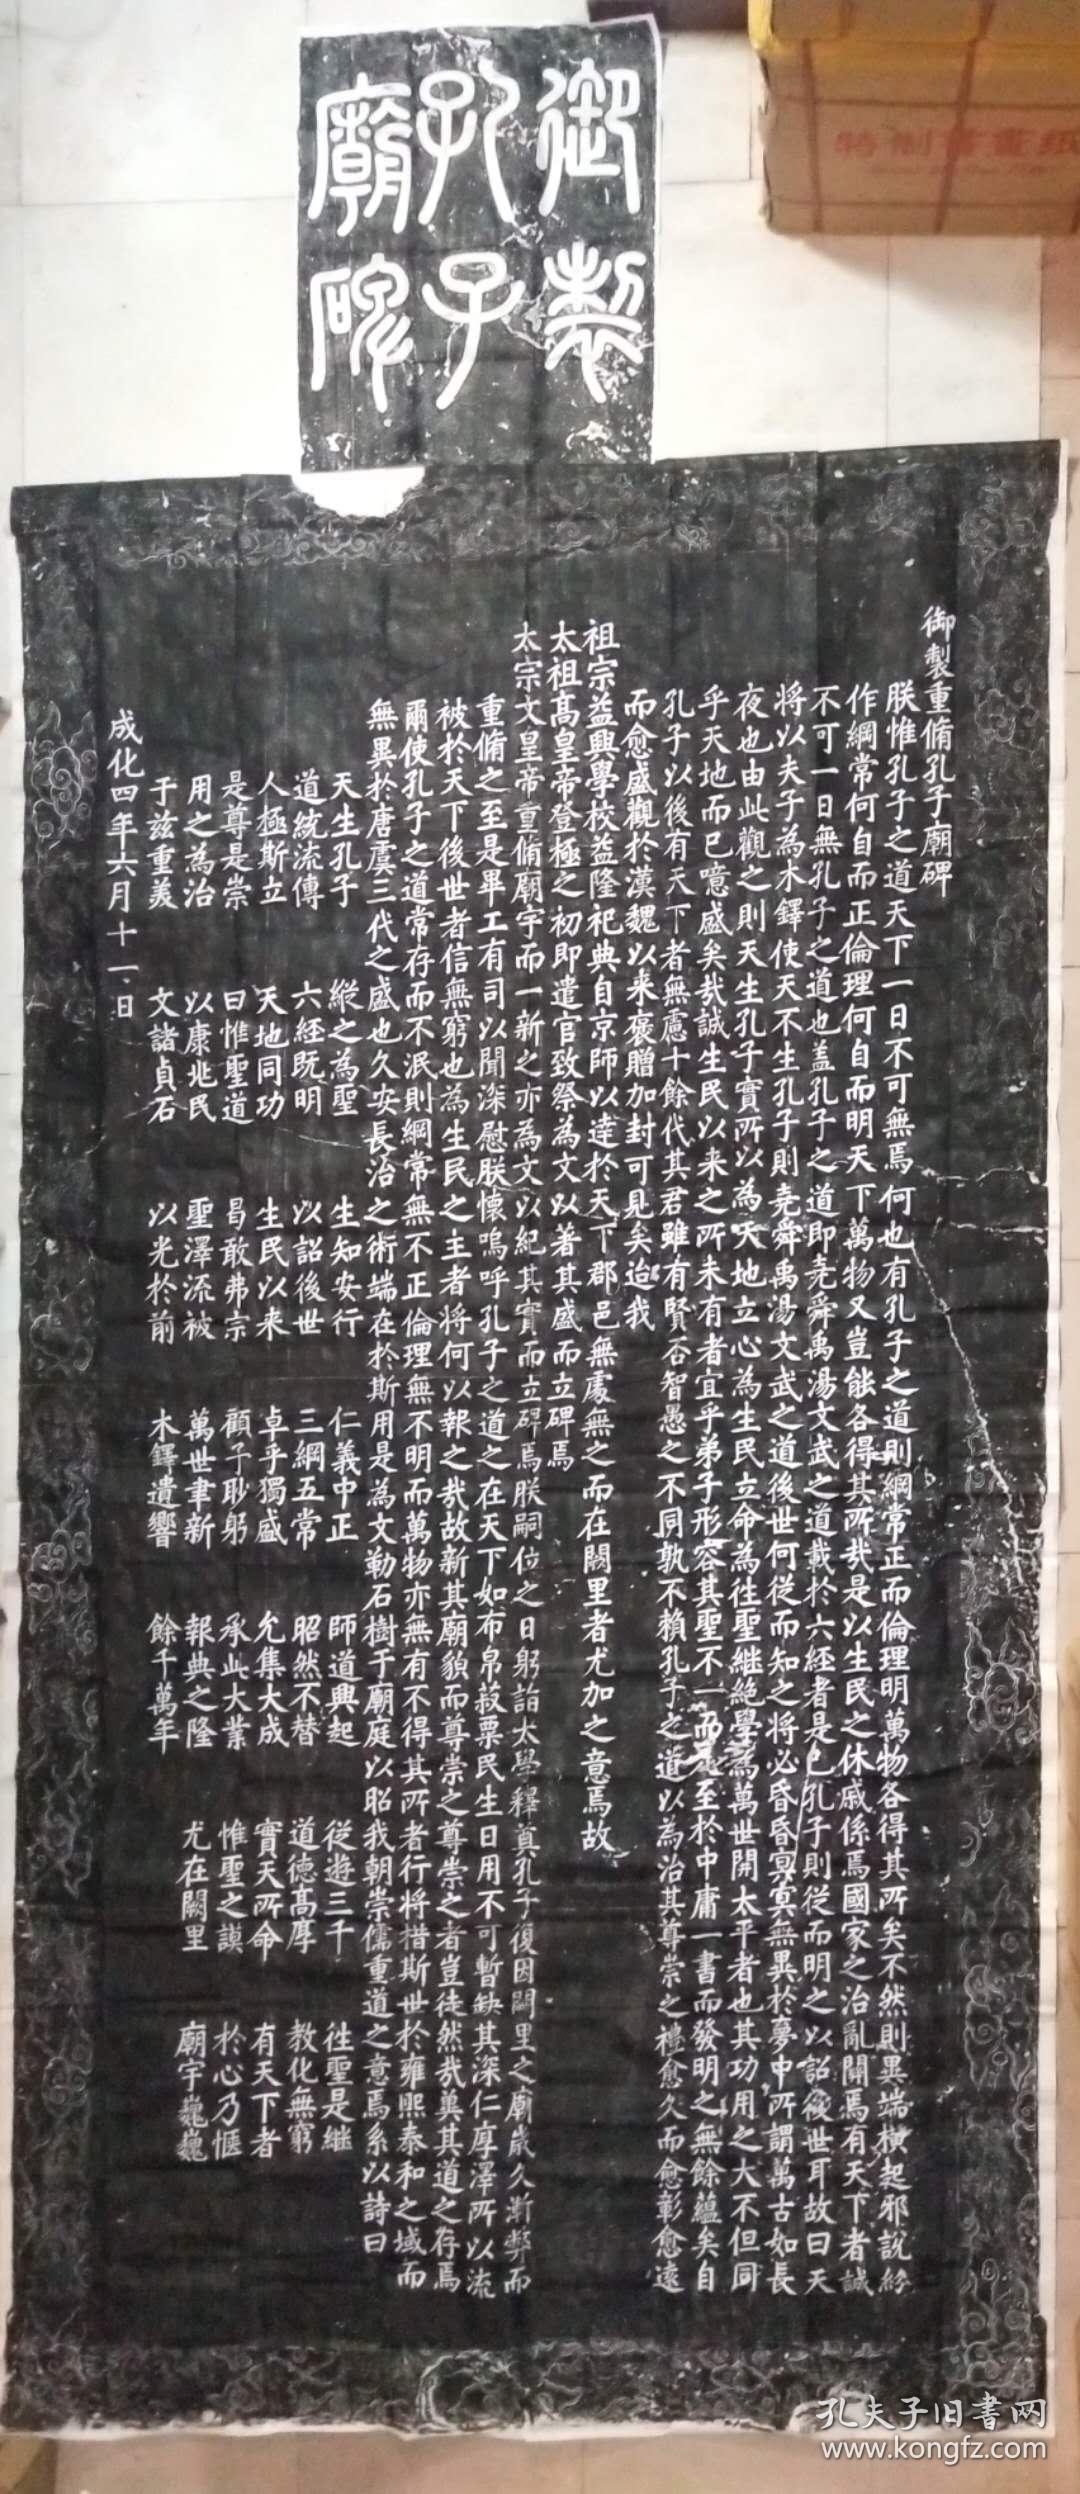 御製
孔子
廟碑
特制書畫紙
御製重脩孔子廟碑
朕惟孔子之道天下一日不可無焉何也有孔子之道則綱常正而倫理明萬物各得其所矣不然則異端橫起邪說紛
作綱常何自而正倫理何自而明天下萬物又豈能各得其所哉是以生民之休戚係焉國家之治亂關焉有天下者誠
不可一日無孔子之道也盖孔子之道即堯舜禹湯文武之道載於六経者是已孔子則従而明之以詔後世耳故曰天
将以夫子為木鐸使天不生孔子則堯舜禹湯文武之道後世何従而知之将必昏昏冥冥無異於夢中所謂萬古如長
夜也由此觀之則天生孔子實所以為天地立心為生民立命為往聖継絶學為萬世開太平者也其功用之大不但同
乎天地而已噫盛矣哉誠生民以来之所未有者宜乎弟子形容其聖不一而足至於中庸一書而發明之無餘蘊矣自
孔子以後有天下者無慮十餘代其君雖有賢否智愚之不同孰不賴孔子之道以為治其尊崇之禮愈久而愈彰愈遠
而愈盛觀於漢魏以来褒贈加封可見矣迨我
祖宗益興學校益隆祀典自京師以達於天下郡邑無處無之而在闕里者尤加之意焉故
太祖髙皇帝登極之初即遣官致祭為文以著其盛而立碑焉
太宗文皇帝重脩廟宇而一新之亦為文以紀其實而立碑焉朕嗣位之日躬詣太學釋奠孔子復因闕里之廟歲久漸弊而
重脩之至是畢工有司以聞深慰朕懷嗚呼孔子之道之在天下如布帛菽粟民生日用不可暫缺其深仁厚澤所以流
被於天下後世者信無窮也為生民之主者将何以報之哉故新其廟貌而尊崇之尊崇之者豈徒然哉冀其道之存焉
爾使孔子之道常存而不泯則綱常無不正倫理無不明而萬物亦無有不得其所者行将措斯世於雍熙泰和之域而
無異於唐虞三代之盛也久安長治之術端在於斯用是為文勒石樹于廟庭以昭我朝崇儒重道之意焉系以詩曰
天生孔子 縱之為聖 生知安行 仁義中正 師道興起 従遊三千 徃聖是継
道統流傳 六經既明 以詔後世 三綱五常 昭然不替 道德髙厚 教化無窮
人極斯立 天地同功 生民以来 卓乎獨盛 允集大成 實天所命 有天下者
是尊是崇 曰惟聖道 曷敢弗宗 顧予眇躬 承此大業 惟聖之謨 於心乃愜
用之為治 以康兆民 聖澤流被 萬世聿新 報典之隆 尤在闕里 廟宇巍巍
于兹重羙 文諸貞石 以光於前 木鐸遺響 餘千萬年
成化四年六月十一日
孔夫子旧書网
www.kongfz.com